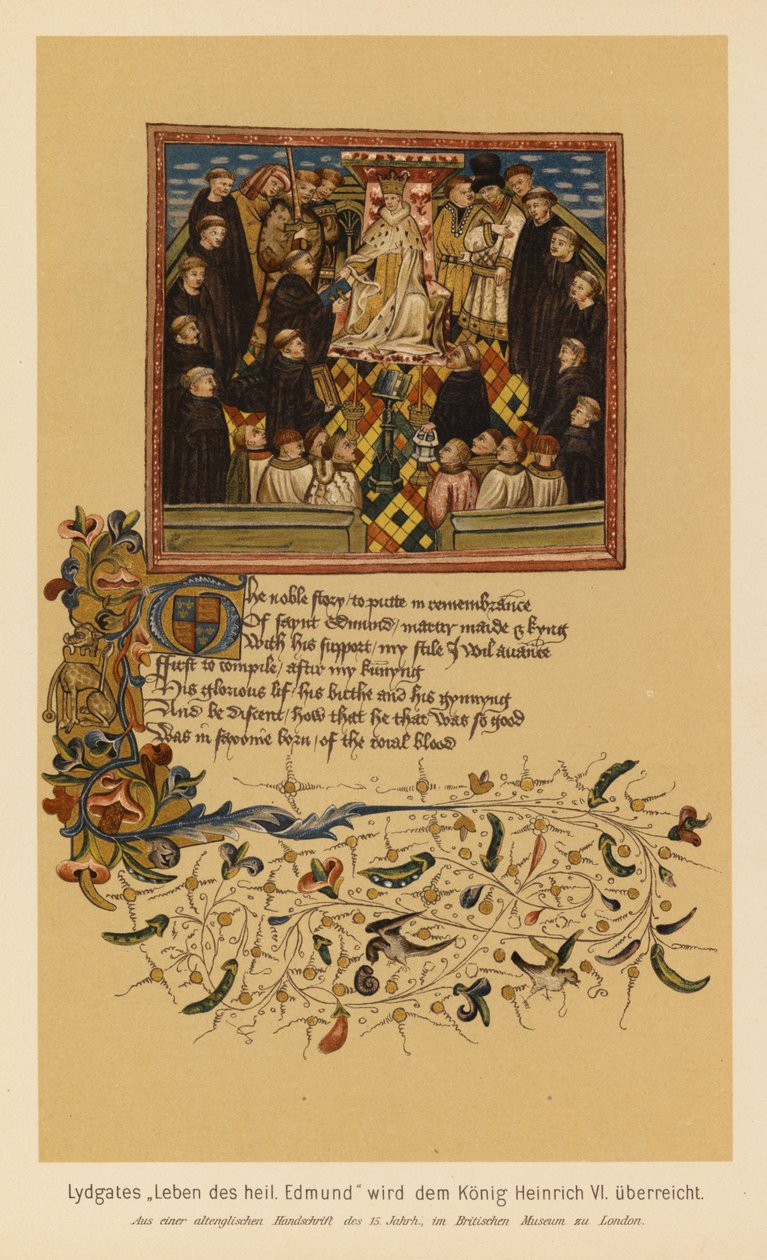 The noble story / to putte in remembrance
Of saynt Edmund / martir maide & kyng
With his support / my stile I wil avance
ffirst to compile / aftir my kunnyng
His glorious lif / his birthe and his gynnyng
And be discent / how that he that was so good
Was in saxonie born / of the roial blood
Lydgates „Leben des heil. Edmund“ wird dem König Heinrich VI. überreicht.
Aus einer altenglischen Handschrift des 15. Jahrh., im Britischen Museum zu London.